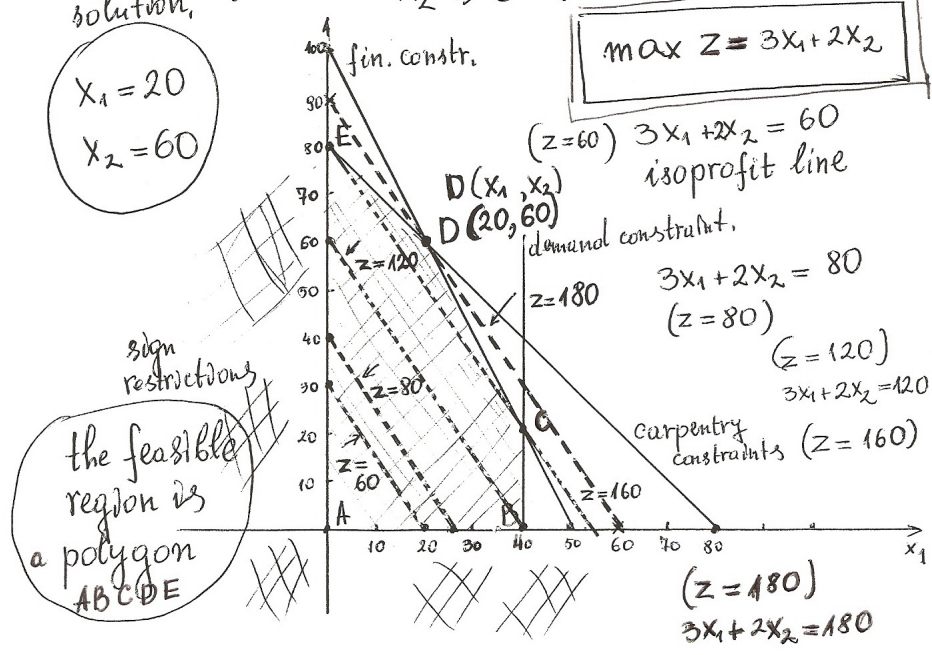 solution.
X₁ = 20
X₂ = 60
max Z = 3X₁ + 2X₂
fin. constr.
(Z=60) 3X₁ + 2X₂ = 60
isoprofit line
D(X₁, X₂)
D(20, 60)
demand constraint.
3X₁ + 2X₂ = 80
(Z = 80)
(Z = 120)
3X₁ + 2X₂ = 120
carpentry
constraints
(Z = 160)
(Z = 180)
3X₁ + 2X₂ = 180
sign
restrictions
the feasible
region is
a polygon
ABCDE
100
90
E
80
70
60
50
40
30
20
10
Z=120
Z=180
Z=80
Z=
60
Z=160
A
B
C
10 20 30 40 50 60 70 80
X₁